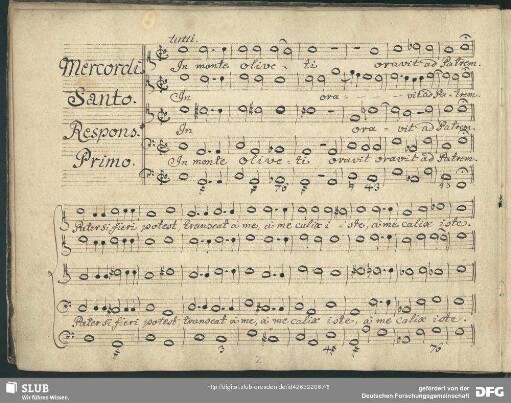 tutti.
Mercordi
Santo.
Respons.
Primo.
In monte olive - ti oravit ad Patrem.
In ora - - - vit ad Patrem.
In ora - vit ad Patrem.
In monte olive - ti oravit oravit ad Patrem.
76 4 43 43
Pater si fieri potest transeat a me, a me calix i - ste, a me calix iste.
Pater si fieri potest transeat a me, a me calix iste, a me calix iste.
3 76
2
SLUB
Wir führen Wissen.
gefördert von der
Deutschen Forschungsgemeinschaft
DFG